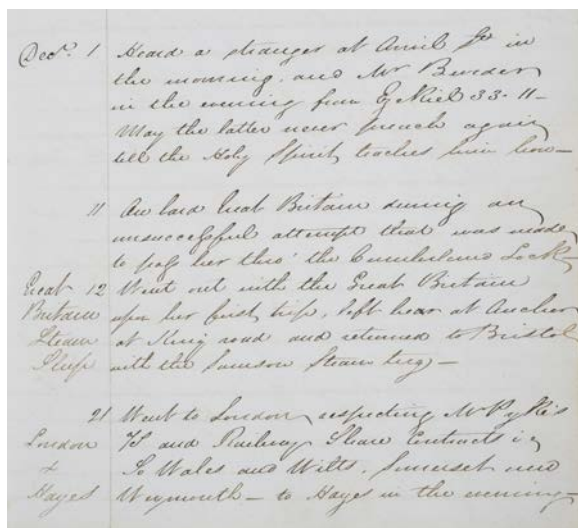 Decr. 1 Heard a stranger at Anvil St in
the morning. and Mr in
in the evening from Ezekiel 33-11-
May the latter never preach again
till the Holy Spirit teaches him how-
11 On board Great Britain during an
unsuccessful attempt that was made
to pass her thro' the Cumberland Lock-
Great 12 Went out with the Great Britain
Britain upon her first trip, left her at Anchor
Steam at King road and returned to Bristol
Ship with the Samson Steam tug-
21 Went to London respecting Mr
London and Railway Share Contracts in
& S. Wales and Wilts, Somerset and
Hayes Weymouth- to Hayes in the evening-